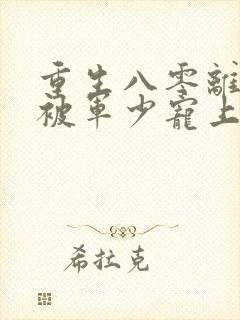 重生八零離
被軍少寵上
希拉克